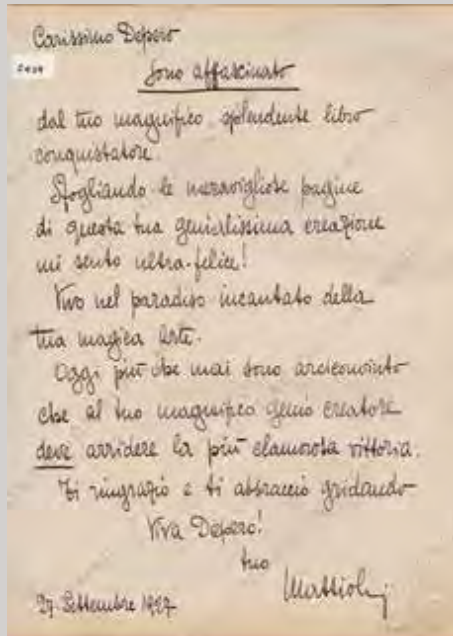 Carissimo Depero
Sono affascinato
dal tuo magnifico, splendente libro
conquistatore.
Sfogliando le meravigliose pagine
di questa tua genialissima creazione
mi sento ultra-felice!
Vivo nel paradiso incantato della
tua magica arte.
Oggi più che mai sono arciconvinto
che al tuo magnifico genio creatore
deve arridere la più clamorosa vittoria.
Ti ringrazio e ti abbraccio gridando
Viva Depero!
tuo
Mattioli
27 Settembre 1927